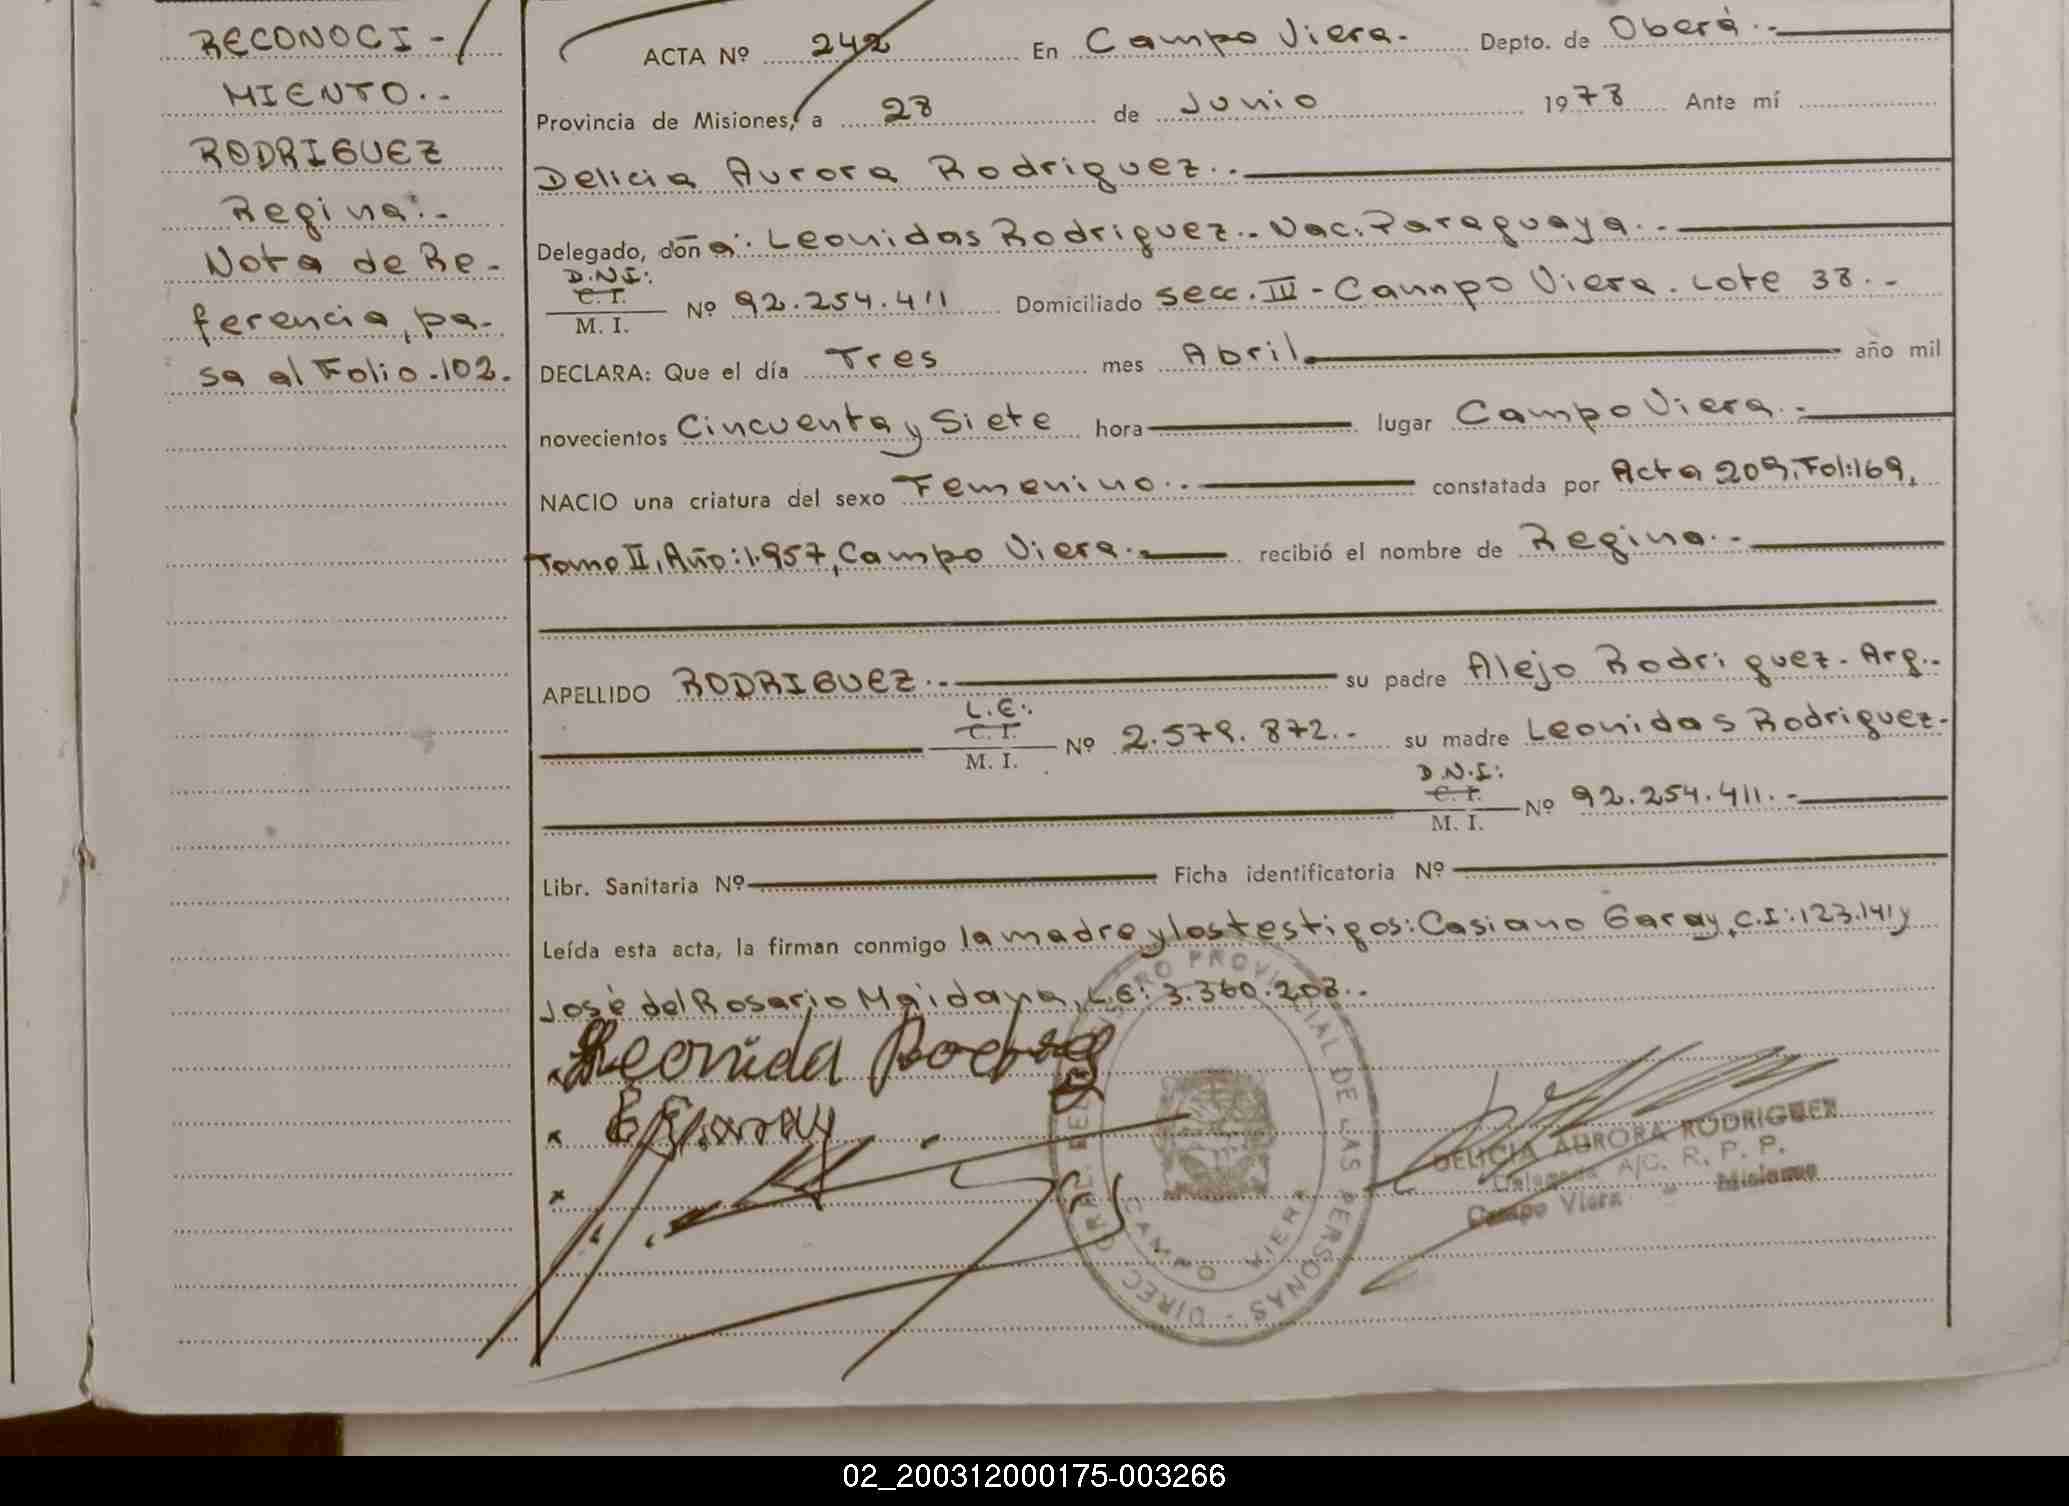 RECONOCI-
MIENTO.-
RODRIGUEZ
Regina.-
Nota de Re-
ferencia, pa-
sa al Folio-102.
ACTA Nº 242 En Campo Viera.- Depto. de Oberá.-
Provincia de Misiones, a 28 de Junio 1978 Ante mí
Delicia Aurora Rodriguez.-
Delegado, doña: Leonidas Rodriguez.- Nac. Paraguaya.-
D.N.I:
C. I.
M. I.
Nº 92.254.411 Domiciliado secc. III - Campo Viera. Lote 38.-
DECLARA: Que el día Tres mes Abril año mil
novecientos Cincuenta y Siete hora lugar Campo Viera.-
NACIO una criatura del sexo Femenino.- constatada por Acta 209, Fol:169,
Tomo II, Año:1.957, Campo Viera.- recibió el nombre de Regina.-
APELLIDO RODRIGUEZ.- su padre Alejo Rodriguez-Arg.-
L.E:.
C. I.
M. I.
Nº 2.579.872.- su madre Leonidas Rodriguez-
D.N.I:
C. I.
M. I.
Nº 92.254.411.-
Libr. Sanitaria Nº Ficha identificatoria Nº
Leída esta acta, la firman conmigo la madre y los testigos: Casiano Garay, C.I:123.141 y
José del Rosario Maidana, L.E: 3.360.208.-
Leonida
Garay
PROVINCIAL DE LAS PERSONAS - DIREC
CAMPO VIERA
DELICIA AURORA RODRIGUEZ
Delegada A/C. R. P. P.
Campo Viera - Misiones
02_200312000175-003266